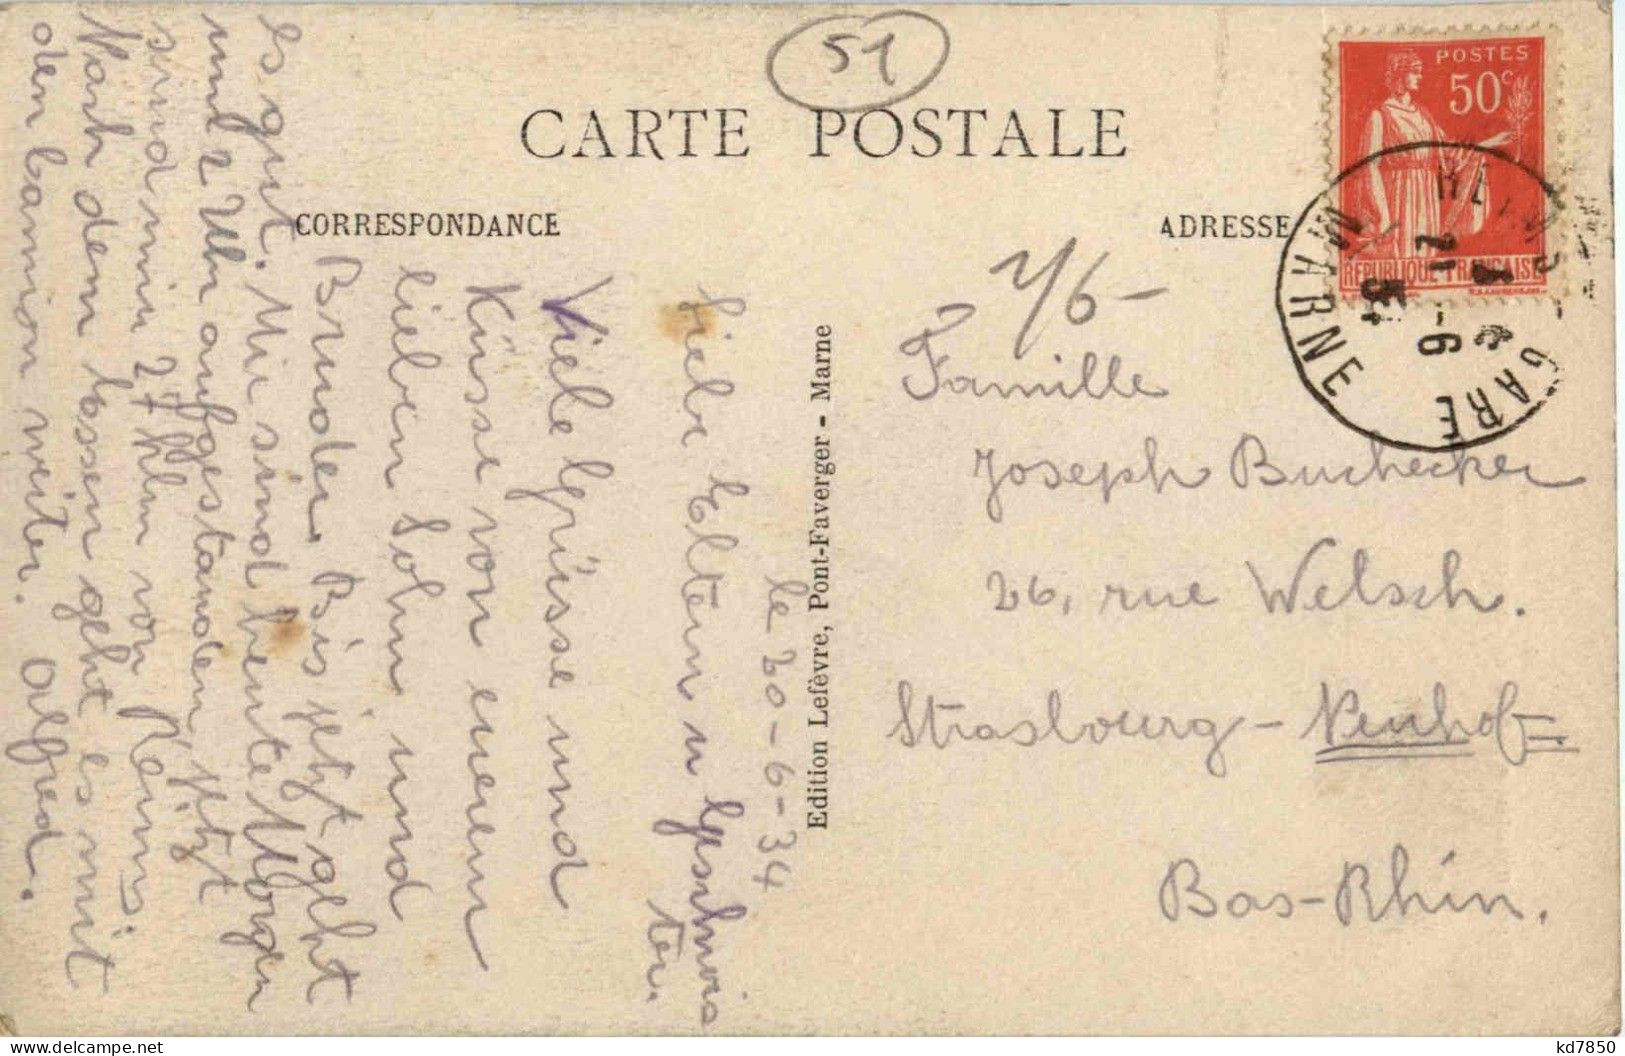 51
CARTE POSTALE
CORRESPONDANCE
ADRESSE
POSTES
50c
REPUBLIQUE FRANÇAISE
REIMS GARE
MARNE
21 - 6
34
Edition Lefèvre, Pont-Faverger - Marne
le 20-6-34
Liebe Eltern u Geschwis
ter.
Viele Grüsse und
Küsse von eurem
lieben Sohn und
Bruder. Bis jetzt geht
es gut. Mir sind heute Morgen
um 2 Uhr aufgestanden, jetzt
sind mir 27 Klm von Reims.
Nach dem Essen geht es mit
den Camion weiter. Alfred.
Famille
Joseph Buchecker
26, rue Welsch.
Strasbourg-Neuhof
Bas-Rhin.
kd7850